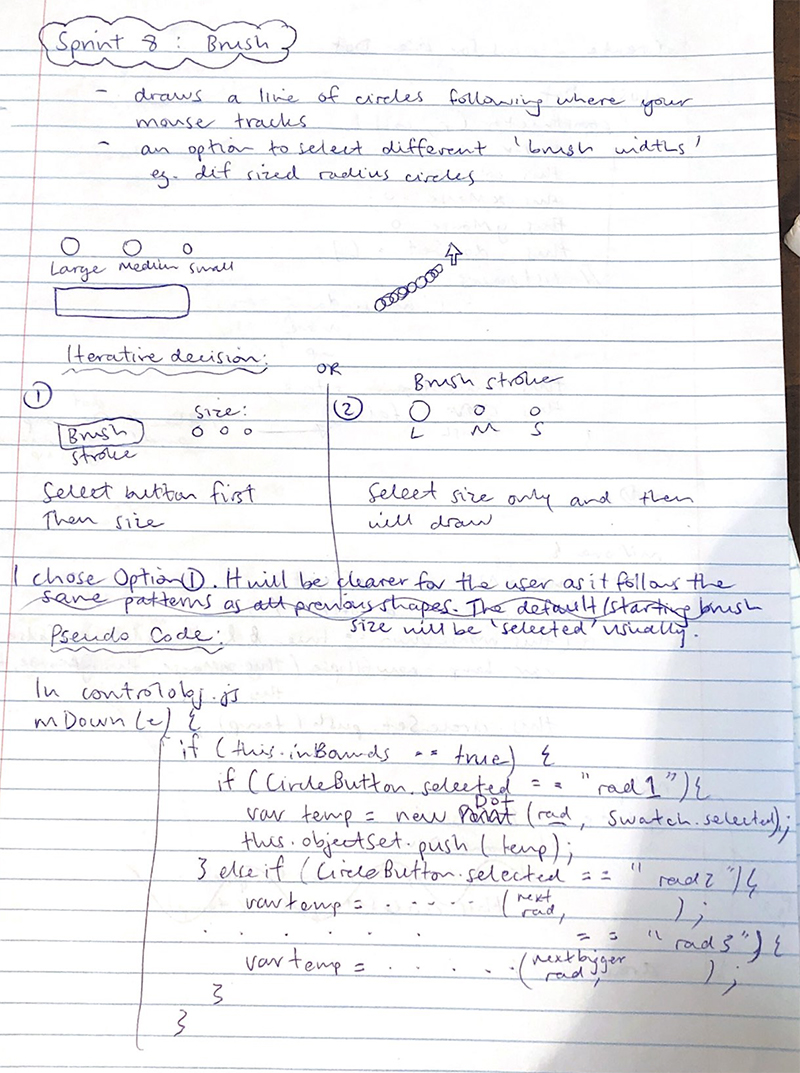 Sprint 8 : Brush
- draws a line of circles following where your
mouse tracks
- an option to select different 'brush widths'
eg. dif sized radius circles
Large Medium Small
Iterative decision:
OR
①
Brush
stroke
Size:
Select button first
Then size
②
Brush stroke
L M S
Select size only and then
will draw
I chose Option ①. It will be clearer for the user as it follows the
same patterns as all previous shapes. The default/starting brush
size will be 'selected' usually.
Pseudo Code:
In controlobj.js
mDown(e) {
if (this.inBounds == true) {
if (CircleButton.selected == "rad1"){
var temp = new Dot (rad, Swatch.selected);
this.objectSet.push(temp);
} else if (CircleButton.selected == "rad2"){
var temp = ..... (next rad, );
. . . . . . == "rad3"){
var temp = ..... (next bigger rad, );
}
}